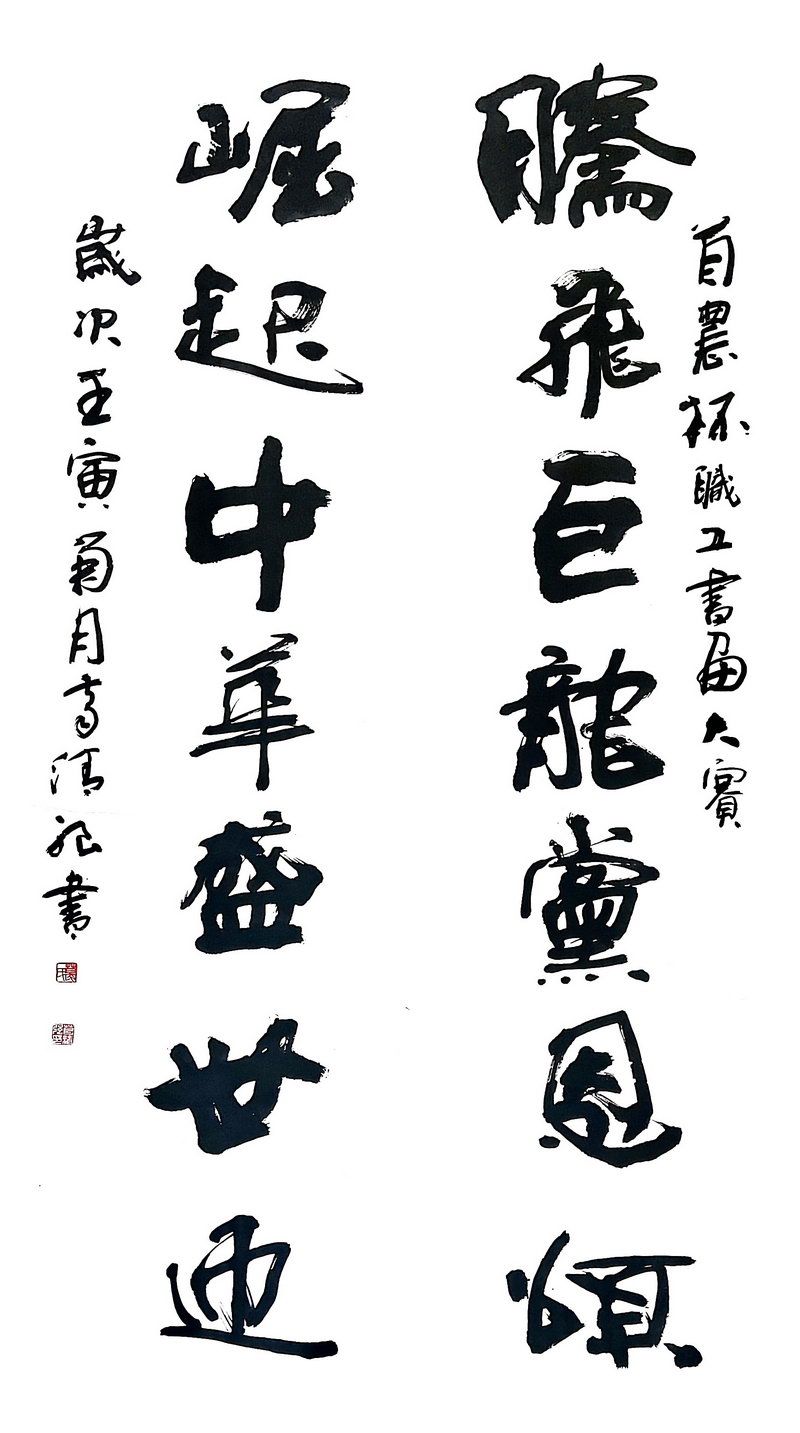 首農杯職工書畫大賽
騰飛巨龍黨恩頌
崛起中華盛世迎
歲次壬寅菊月高清祀書